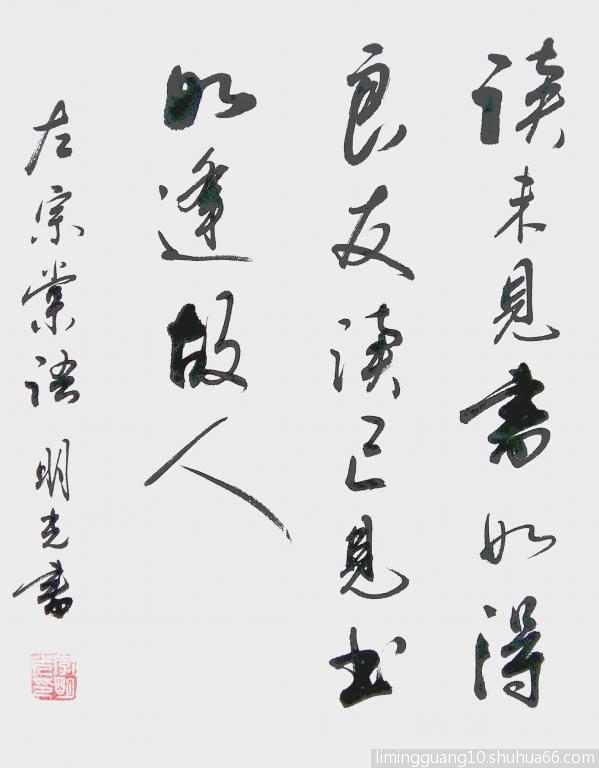 读未見書如得
良友读已見书
如逢故人
左宗棠语 明光書
limingguang10.shuhua66.com